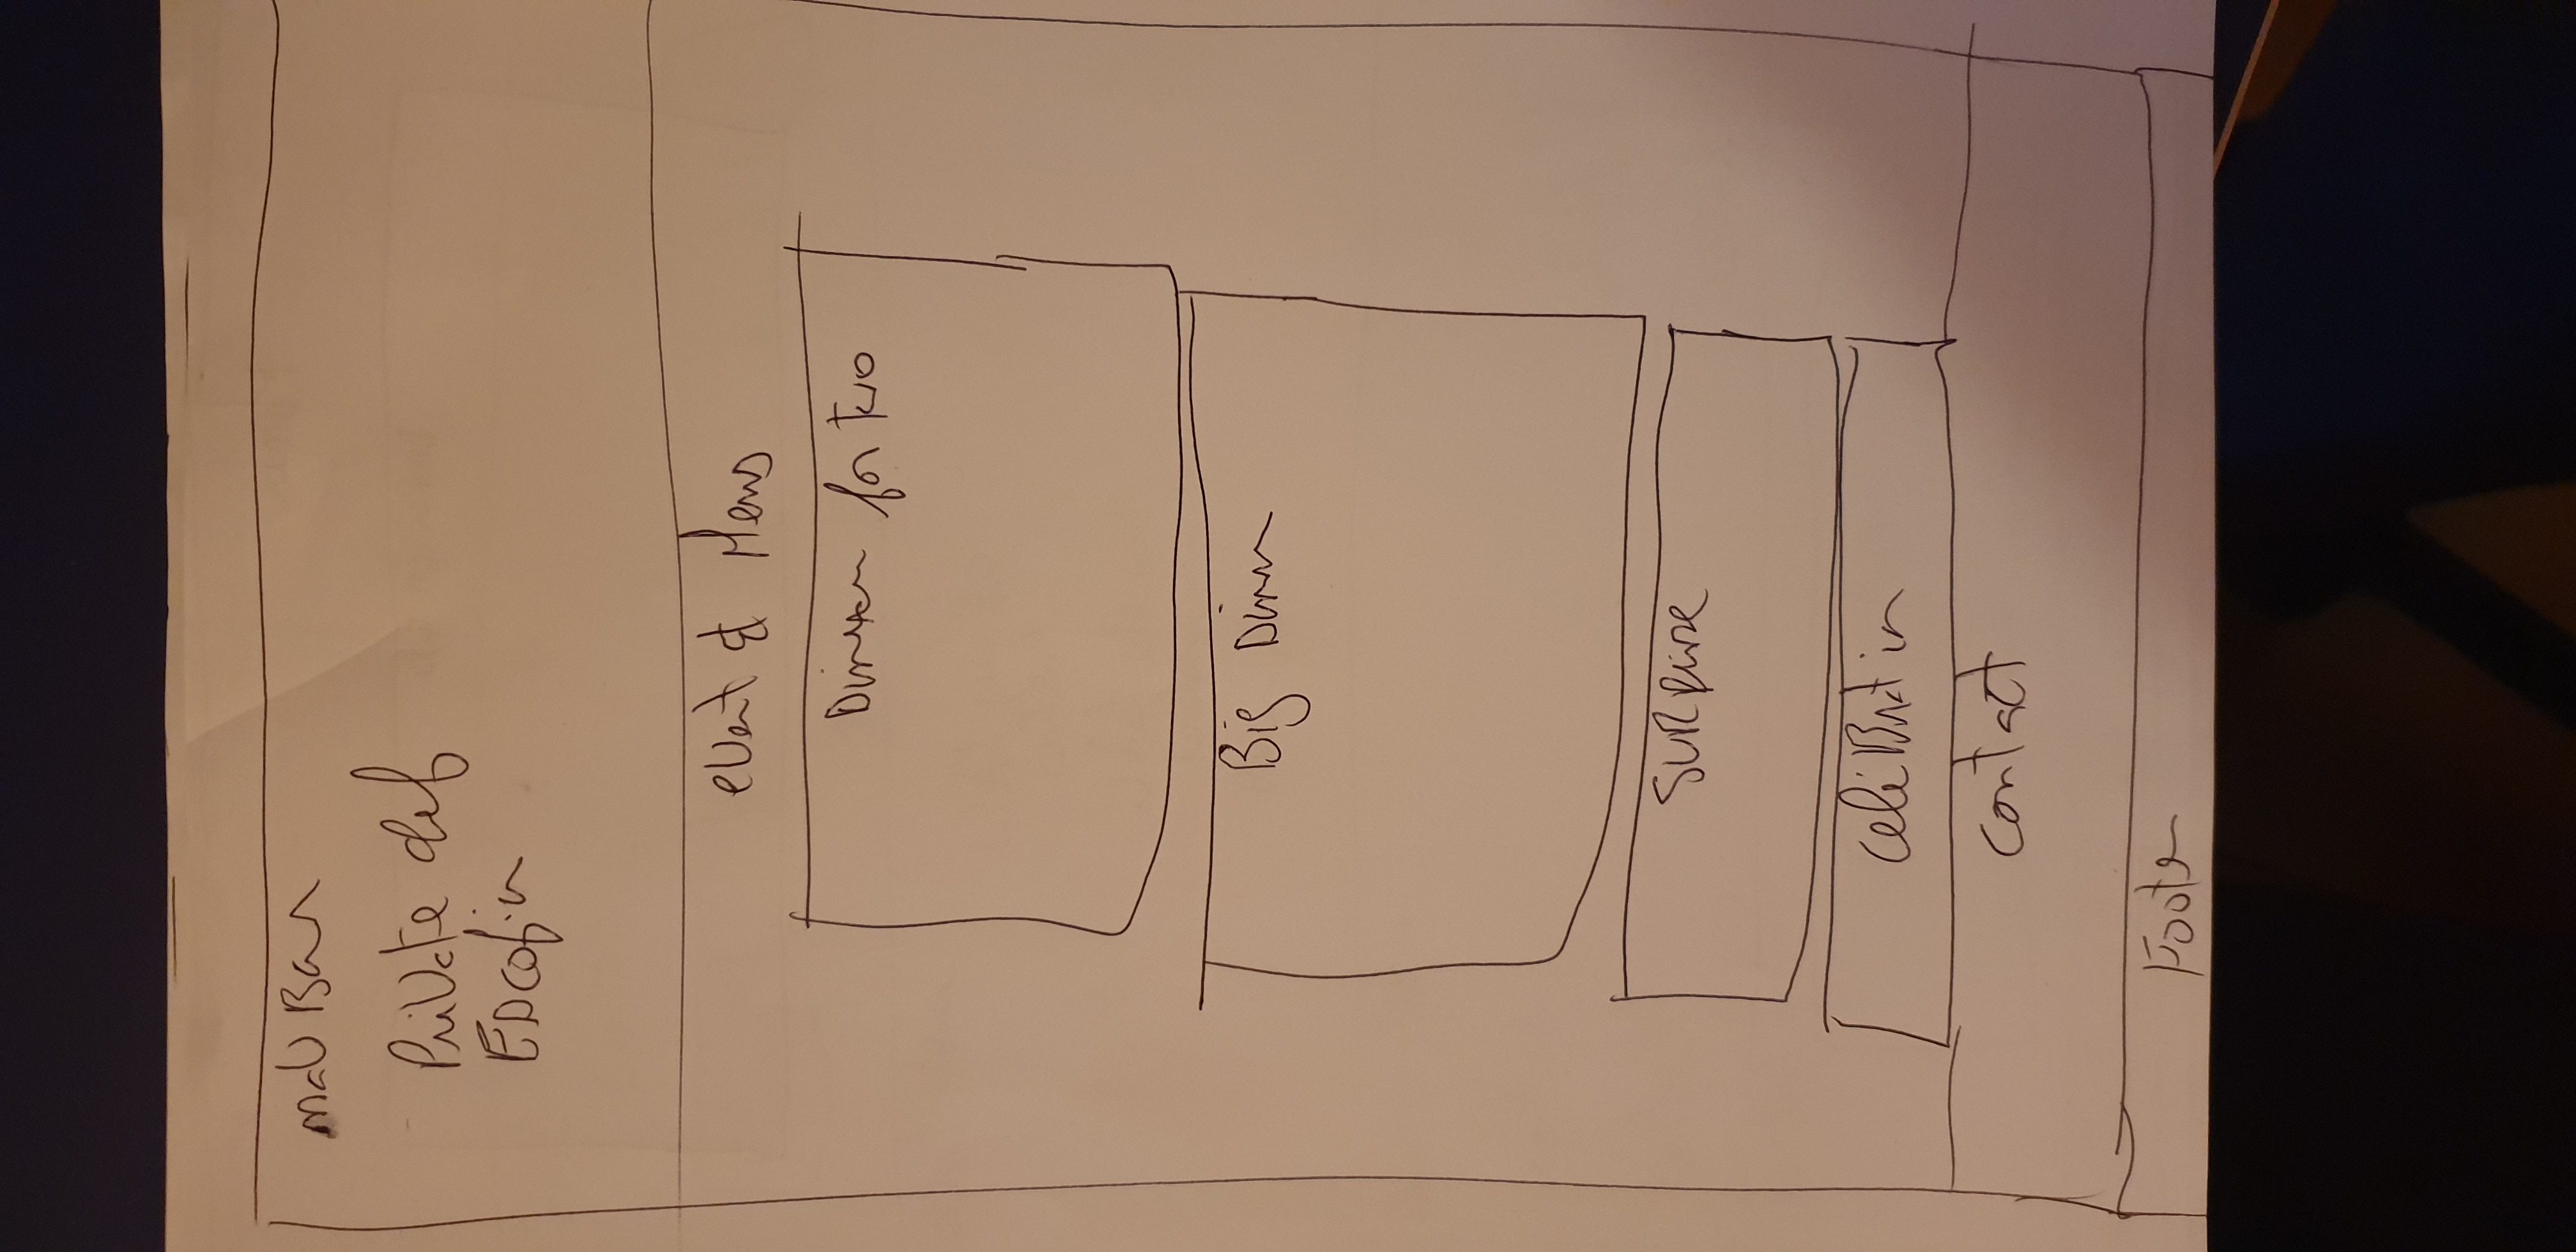 nav Bar
Private chef
event & Menus
Dinner for two
Big Dinner
SURprise
celeBration
contact
Footer